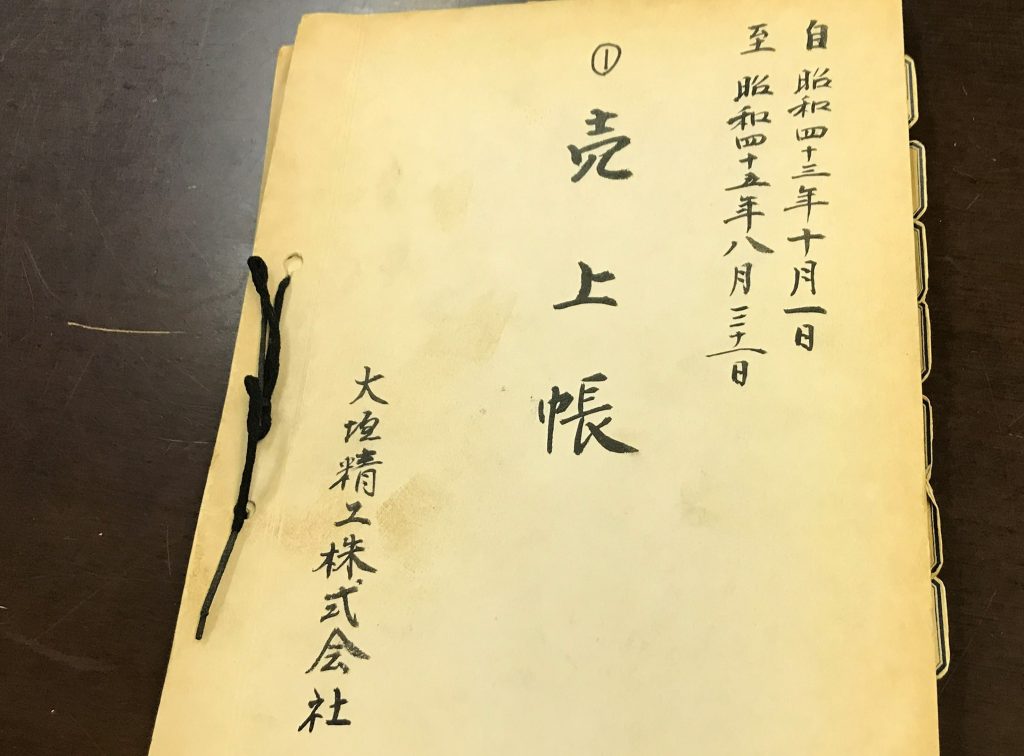 自 昭和四十三年十月一日
至 昭和四十五年八月三十一日
① 売上帳
大垣精工株式会社